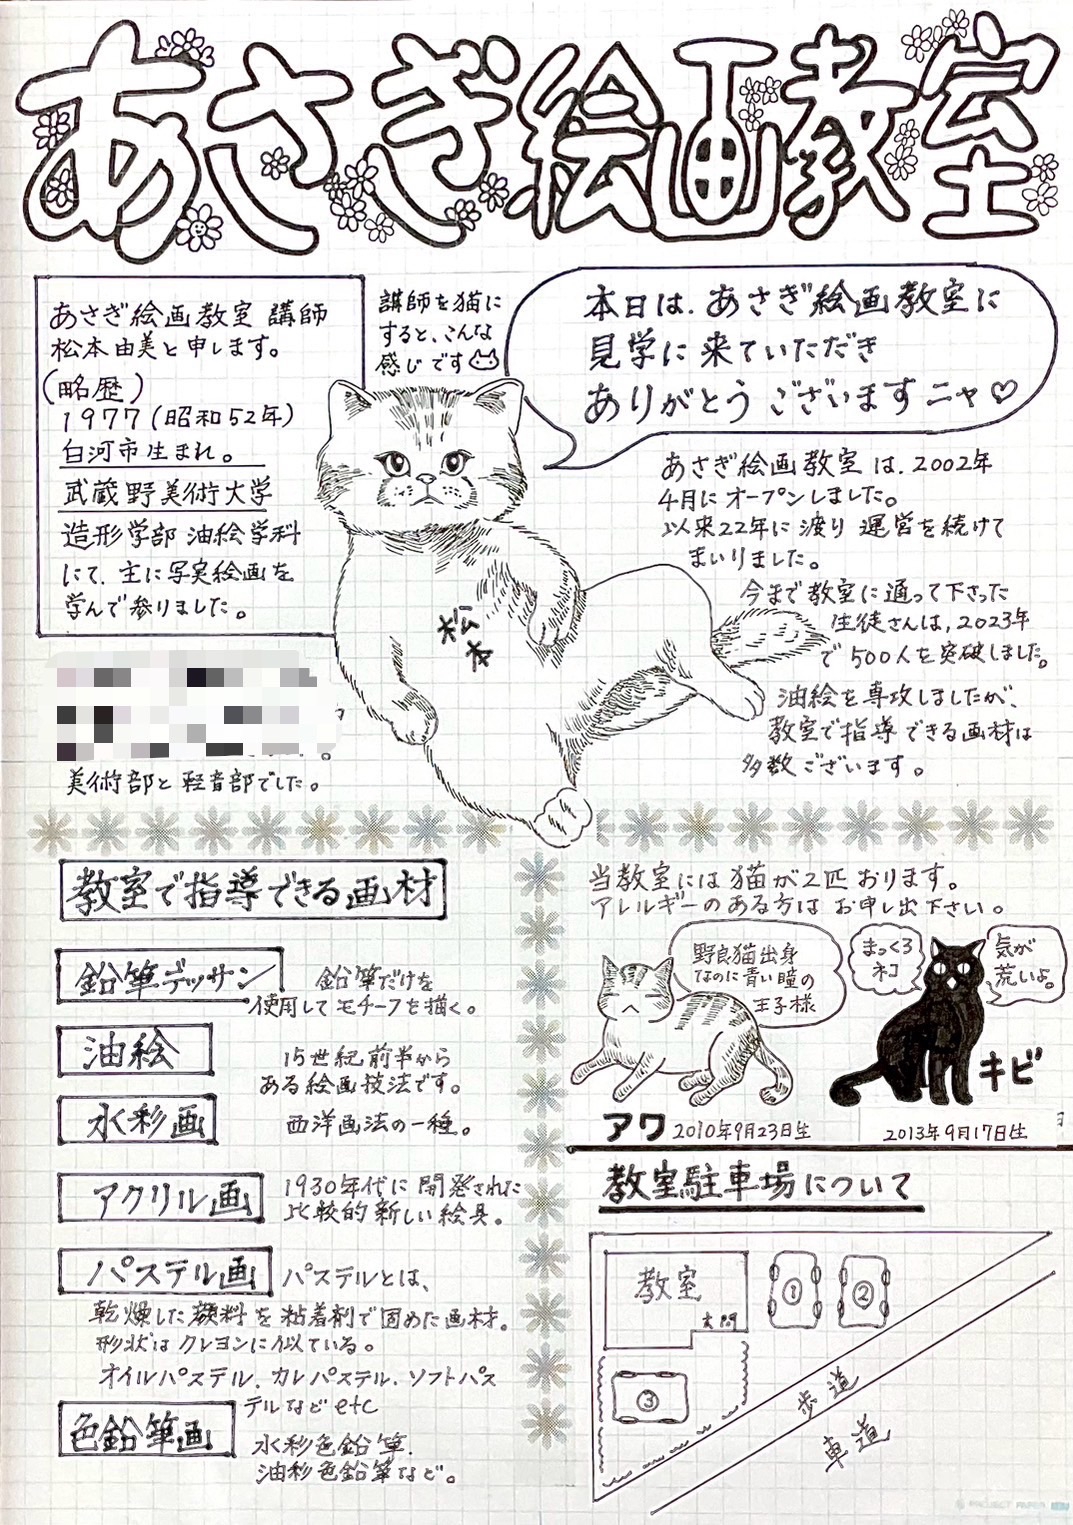 あさぎ絵画教室
あさぎ絵画教室 講師
松本由美と申します。
(略歴)
1977(昭和52年)
白河市生まれ。
武蔵野美術大学
造形学部 油絵学科
にて、主に写実絵画を
学んで参りました。
美術部と軽音部でした。
講師を猫に
すると、こんな
感じです
本日は、あさぎ絵画教室に
見学に来ていただき
ありがとうございますニャ♡
松本
あさぎ絵画教室は、2002年
4月にオープンしました。
以来22年に渡り運営を続けて
まいりました。
今まで教室に通って下さった
生徒さんは、2023年
で500人を突破しました。
油絵を専攻しましたが、
教室で指導できる画材は
多数ございます。
教室で指導できる画材
鉛筆デッサン
鉛筆だけを
使用してモチーフを描く。
油絵
15世紀前半から
ある絵画技法です。
水彩画
西洋画法の一種。
アクリル画
1930年代に開発された
比較的新しい絵具。
パステル画
パステルとは、
乾燥した顔料を粘着剤で固めた画材。
形状はクレヨンに似ている。
オイルパステル、カレパステル、ソフトパス
テルなどetc
色鉛筆画
水彩色鉛筆、
油彩色鉛筆など。
当教室には猫が2匹おります。
アレルギーのある方はお申し出下さい。
野良猫出身
なのに青い瞳の
王子様
まっくろ
ネコ
気が
荒いよ。
キビ
アワ 2010年9月23日生
2013年9月17日生
教室駐車場について
教室
玄関
①
②
③
歩道
車道
PROJECT PAPER